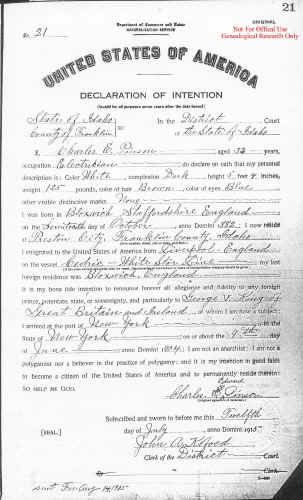 21
ORIGINAL
Not For Offical Use
Genealogical Research Only
Department of Commerce and Labor
NATURALIZATION SERVICE
No. 21
UNITED STATES OF AMERICA
DECLARATION OF INTENTION
(Invalid for all purposes seven years after the date hereof)
State of Idaho In the District Court
County of Franklin ss: of the State of Idaho
I, Charles E. Pinson aged 32 years,
occupation Electrician do declare on oath that my personal
description is: Color White complexion Dark height 5 feet 4 inches,
weight 125 pounds, color of hair Brown color of eyes Blue
other visible distinctive marks None
I was born in Bloxwich Staffordshire England
on the day of October anno Domini I now reside
at Preston City, Franklin County, Idaho
I emigrated to the United States of America from Liverpool England
on the vessel Cedric - White Star Line my last
foreign residence was Bloxwich England
It is my bona fide intention to renounce forever all allegiance and fidelity to any foreign
prince, potentate, state, or sovereignty, and particularly to George V. King of
Great Britain and Ireland of whom I am now a subject;
I arrived at the port of New York in the
State of New York on or about the 9th day
of June anno Domini I am not an anarchist; I am not a
polygamist nor a believer in the practice of polygamy; and it is my intention in good faith
to become a citizen of the United States of America and to permanently reside therein:
SO HELP ME GOD.
Charles Edward Pinson
Subscribed and sworn to before me this Twelfth
[SEAL] day of July anno Domini 1915
John A.
Clerk of the District Court.
Clerk.
sent Aug 14, 1915